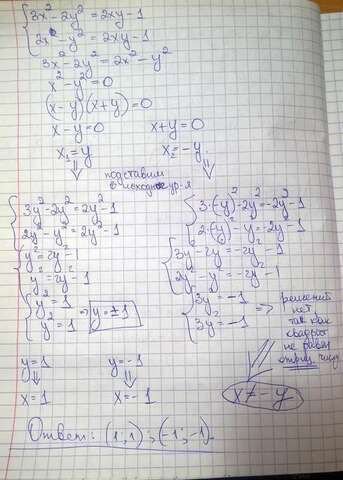 3x²-2y²=2xy-1
2x²-y²=2xy-1
3x²-2y²=2x²-y²
x²-y²=0
(x-y)(x+y)=0
x-y=0 x+y=0
x₁=y x₂=-y
подставим
в исходные ур-я
3y²-2y²=2y²-1
2y²-y²=2y²-1
y²=2y²-1
y²=2y²-1
y²=1
y²=1 ⇒ y=±1
y=1 y=-1
⇓ ⇓
x=1 x=-1
3·(-y)²-2y²=-2y²-1
2·(-y)²-y²=-2y²-1
3y²-2y²=-2y²-1
2y²-y²=-2y²-1
3y²=-1
3y²=-1 ⇒
решений
нет
так как
квадрат
не равен
отриц. числу
x≠-y
Ответ: (1;1);(-1;-1).